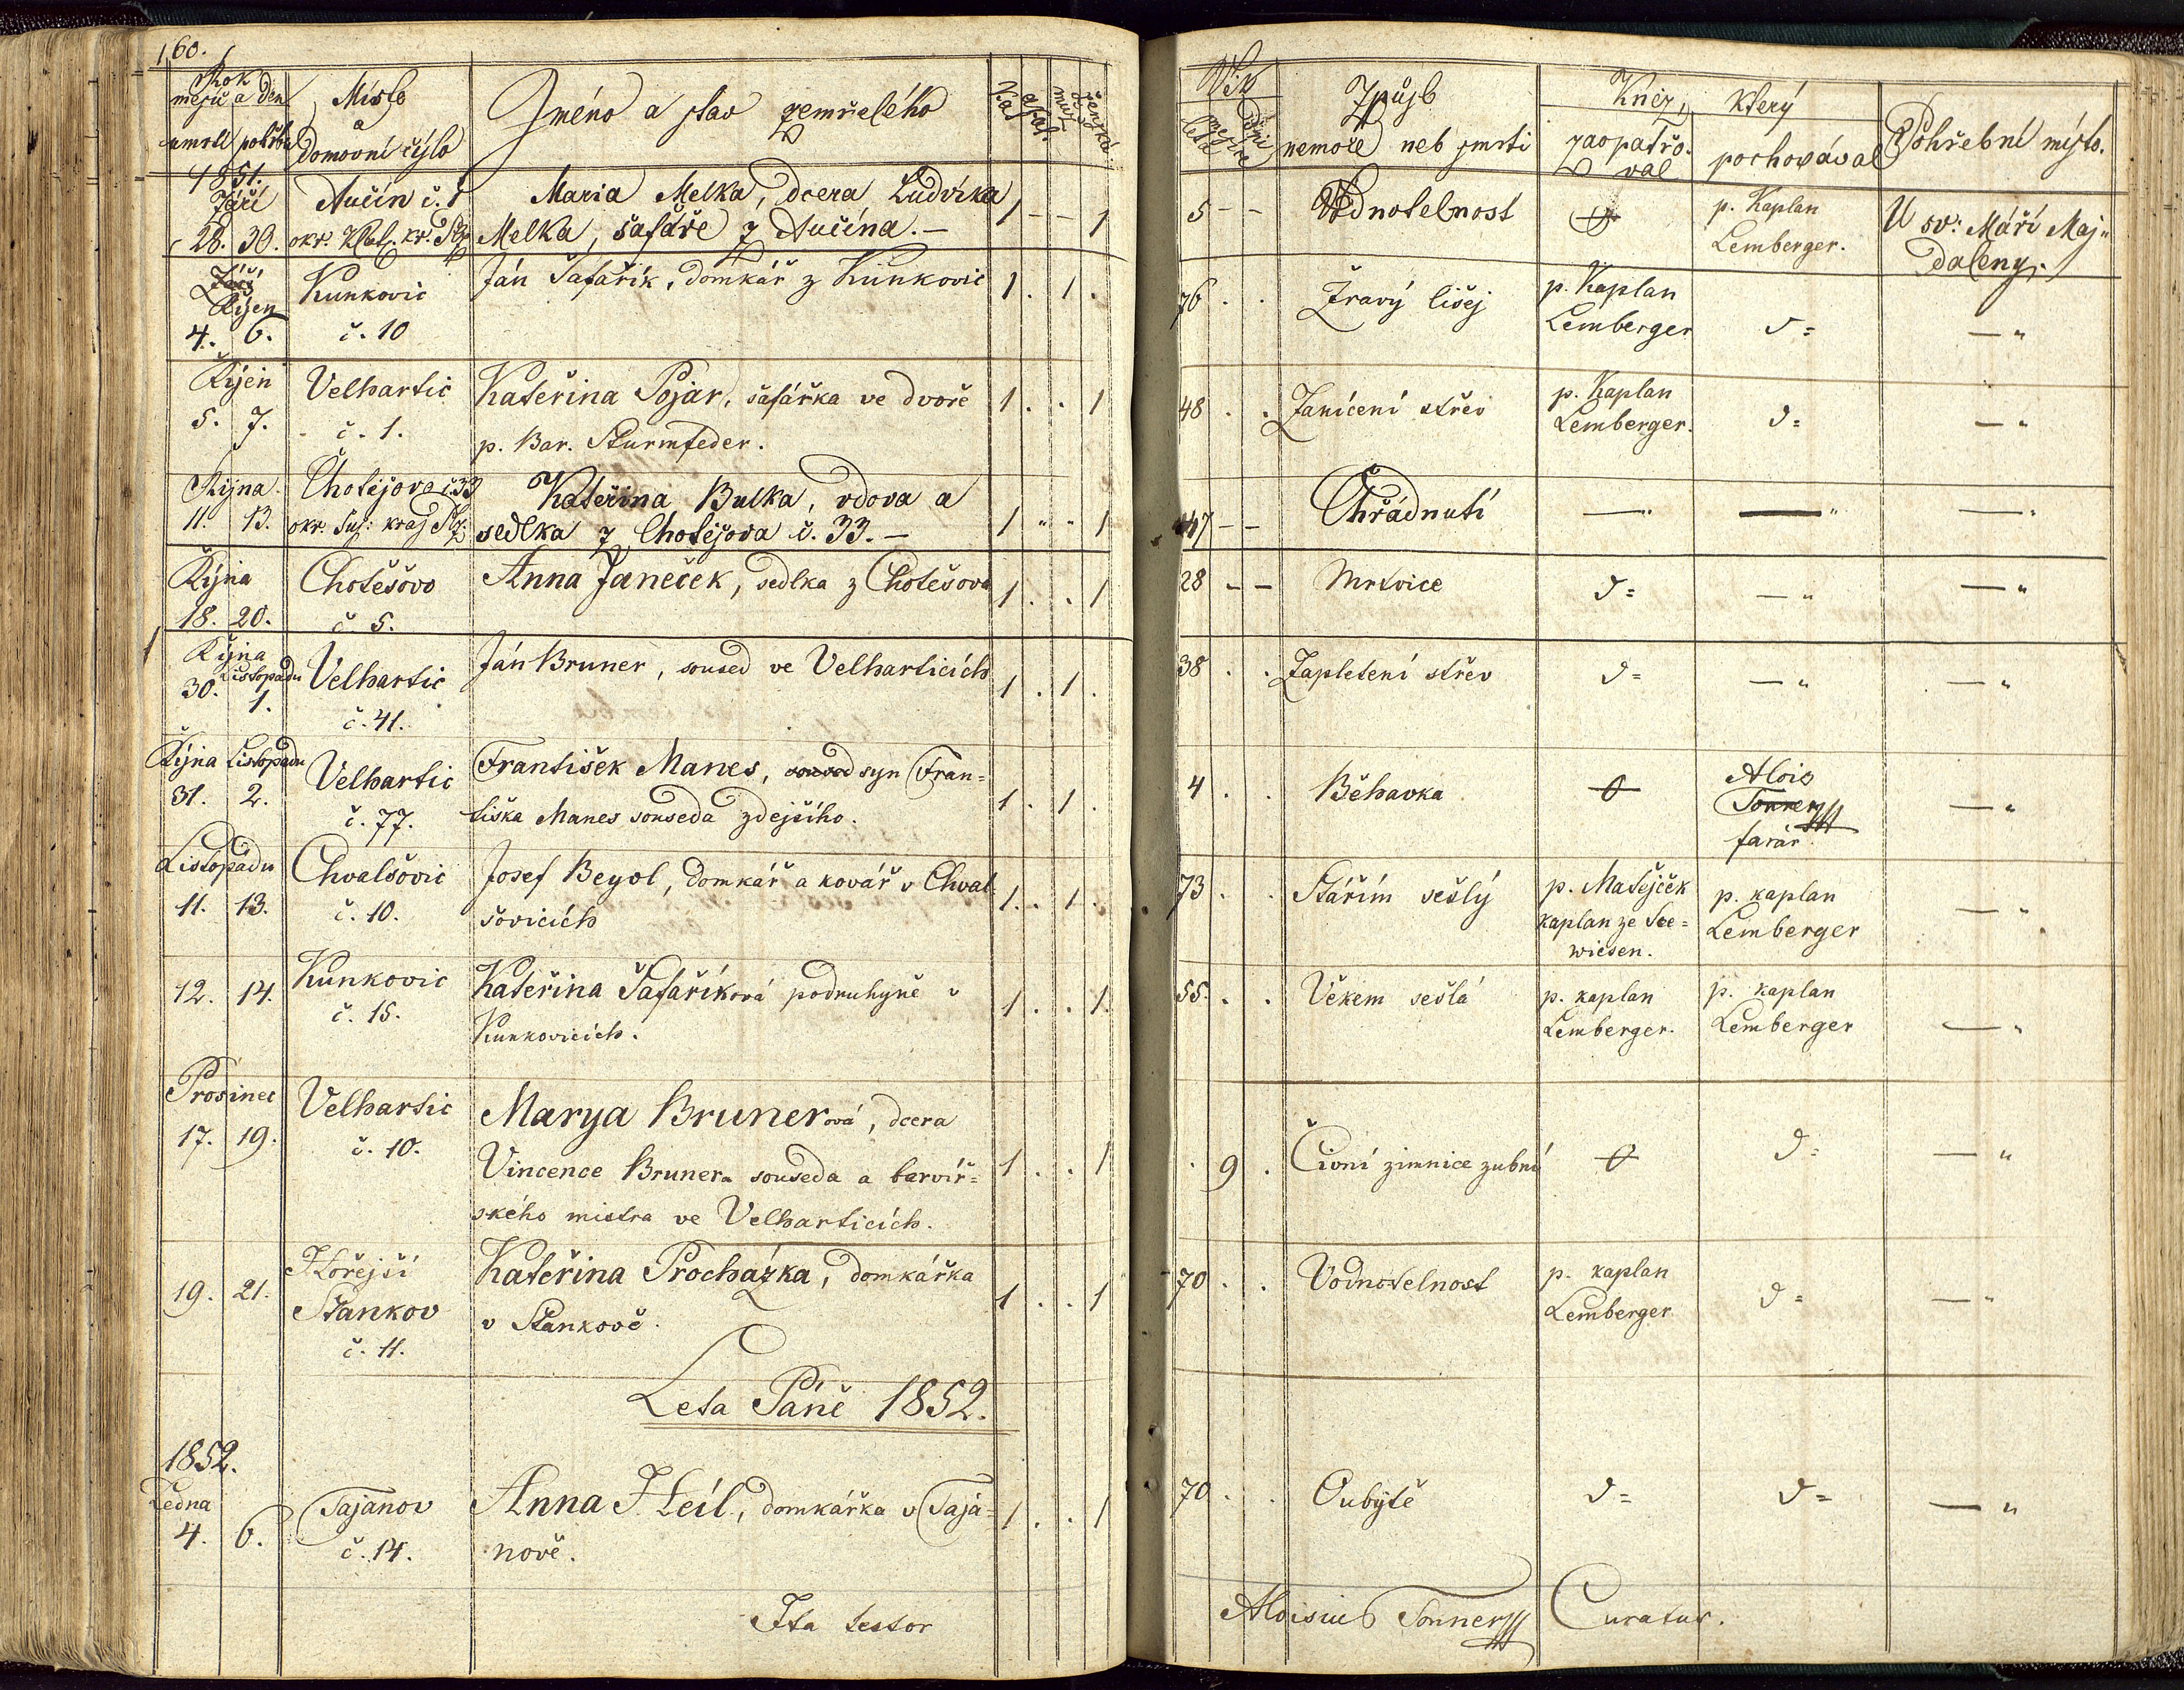 160.
Rok
mesíc a den
Místo
a
domovní čýslo
Jméno a stav zemřelého
umrtí pohřbu
Kat.
akat.
mužské
ženské
Wěk
léta
mesíce
dni
Způsb
nemoče neb smrti
Kněz, který
zaopatřo-
val
pochovával
Pohřební místo.
1851.
Září
28. 30.
Aučín č. 1
okr. Klat. kr. Plz.
Maria Melka, dcera Ludvíka
Melka, šafáře z Aučína. —
1 — — 1
5 — —
Wodnotelnost
p. Kaplan
Lemberger.
U sv: Máří Maj„
daleny.
Září
Řijen
4. 6.
Kunkovic
č. 10
Ján Šafařík, domkář z Kunkovic
1 . 1 .
76 . .
Žravý lišej
p. Kaplan
Lemberger
d=
— "
Řijen
5. 7.
Velhartic
č. 1.
Kateřina Pojar, šafářka ve dvoře
p. Bar. Sturmfeder.
1 . . 1
48 . .
Zanícení střev
p. Kaplan
Lemberger.
d=
— "
Řijna
11. 13.
Chotějova č. 33
okr. Suš: kraj Plz.
Kateřina Bulka, vdova a
sedlka z Chotějova č. 33. —
1 " " 1
47 — —
Chřádnutí
— "
— "
— "
Řijna
18. 20.
Chotěšovo
č. 5.
Anna Janeček, sedlka z Chotěšova
1 . . 1
28 — —
Mrtvice
d=
— "
— "
Řijna
Listopadu
30. 1.
Velhartic
č. 41.
Ján Bruner, soused ve Velharticích
1 . 1 .
38 . .
Zapletení střev
d=
— "
— "
Řijna Listopadu
31. 2.
Velhartic
č. 77.
František Manes, soused syn Fran=
tiška Manes souseda zdejšího.
1 . 1 .
4 . .
Běhavka
Alois
Tonner
farář.
— "
Listopadu
11. 13.
Chvalšovic
č. 10.
Josef Beyol, domkář a kovář v Chval
šovicích
1 . 1 .
73 . .
Stářím sešlý
p. Matějček
kaplan ze See=
wiesen.
p. kaplan
Lemberger
— "
12. 14.
Kunkovic
č. 15.
Kateřina Šafaříková podruhyně v
Kunkovicích.
1 . . 1.
55. . .
Věkem sešlá
p. kaplan
Lemberger.
p. kaplan
Lemberger
— "
Prosinec
17. 19.
Velhartic
č. 10.
Marya Brunerová, dcera
Vincence Brunera souseda a barvíř=
ského mistra ve Velharticích.
1 . . 1
. 9 .
Čivní zimnice zubní
d=
— "
19. 21.
Hořejší
Stankov
č. 11.
Kateřina Procházka, domkářka
v Stankově.
1 . . 1
70 . .
Vodnotelnost
p. kaplan
Lemberger
d=
— "
Leta Páně 1852.
1852.
Ledna
4. 6.
Tajanov
č. 14.
Anna Heil, domkářka v Taja=
nově.
1 . . 1
70 . .
Oubytě
d=
d=
— "
Ita testor
Aloisius Tonner Curatus.